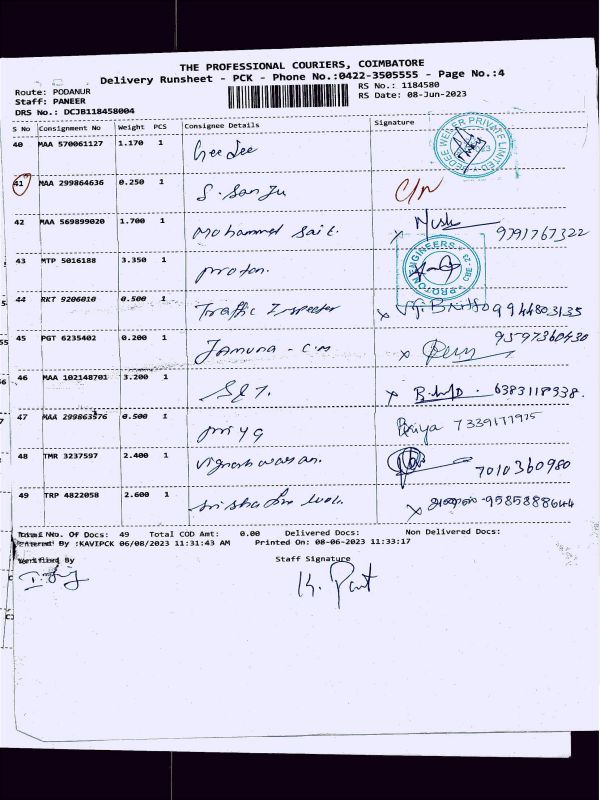 THE PROFESSIONAL COURIERS, COIMBATORE
Delivery Runsheet - PCK - Phone No.:0422-3505555 - Page No.:4
Route: PODANUR RS No.: 1184580
Staff: PANEER RS Date: 08-Jun-2023
DRS No.: DCJB118458004
S No Consignment No Weight PCS Consignee Details Signature
40 MAA 570061127 1.170 1 Gee Dee
41 MAA 299864636 0.250 1 S. Sanju C/n
42 MAA 569899020 1.700 1 Mohammed Sait. x 9791767322
43 MTP 5016188 3.350 1 proton. PROTON ENGINEERS CBE - 23
44 RKT 9206010 0.500 1 Traffic Inspector x 9944803135
45 PGT 6235402 0.200 1 Jamuna - C.M x 9597360430
46 MAA 102148701 3.200 1 x 6383118938.
47 MAA 299863576 0.500 1 priya Priya 7339177975
48 TMR 3237597 2.400 1 7010360980
49 TRP 4822058 2.600 1 x 9585888644
Total No. Of Docs: 49 Total COD Amt: 0.00 Delivered Docs: Non Delivered Docs:
Entered By :KAVIPCK 06/08/2023 11:31:43 AM Printed On: 08-06-2023 11:33:17
Verified By Staff Signature